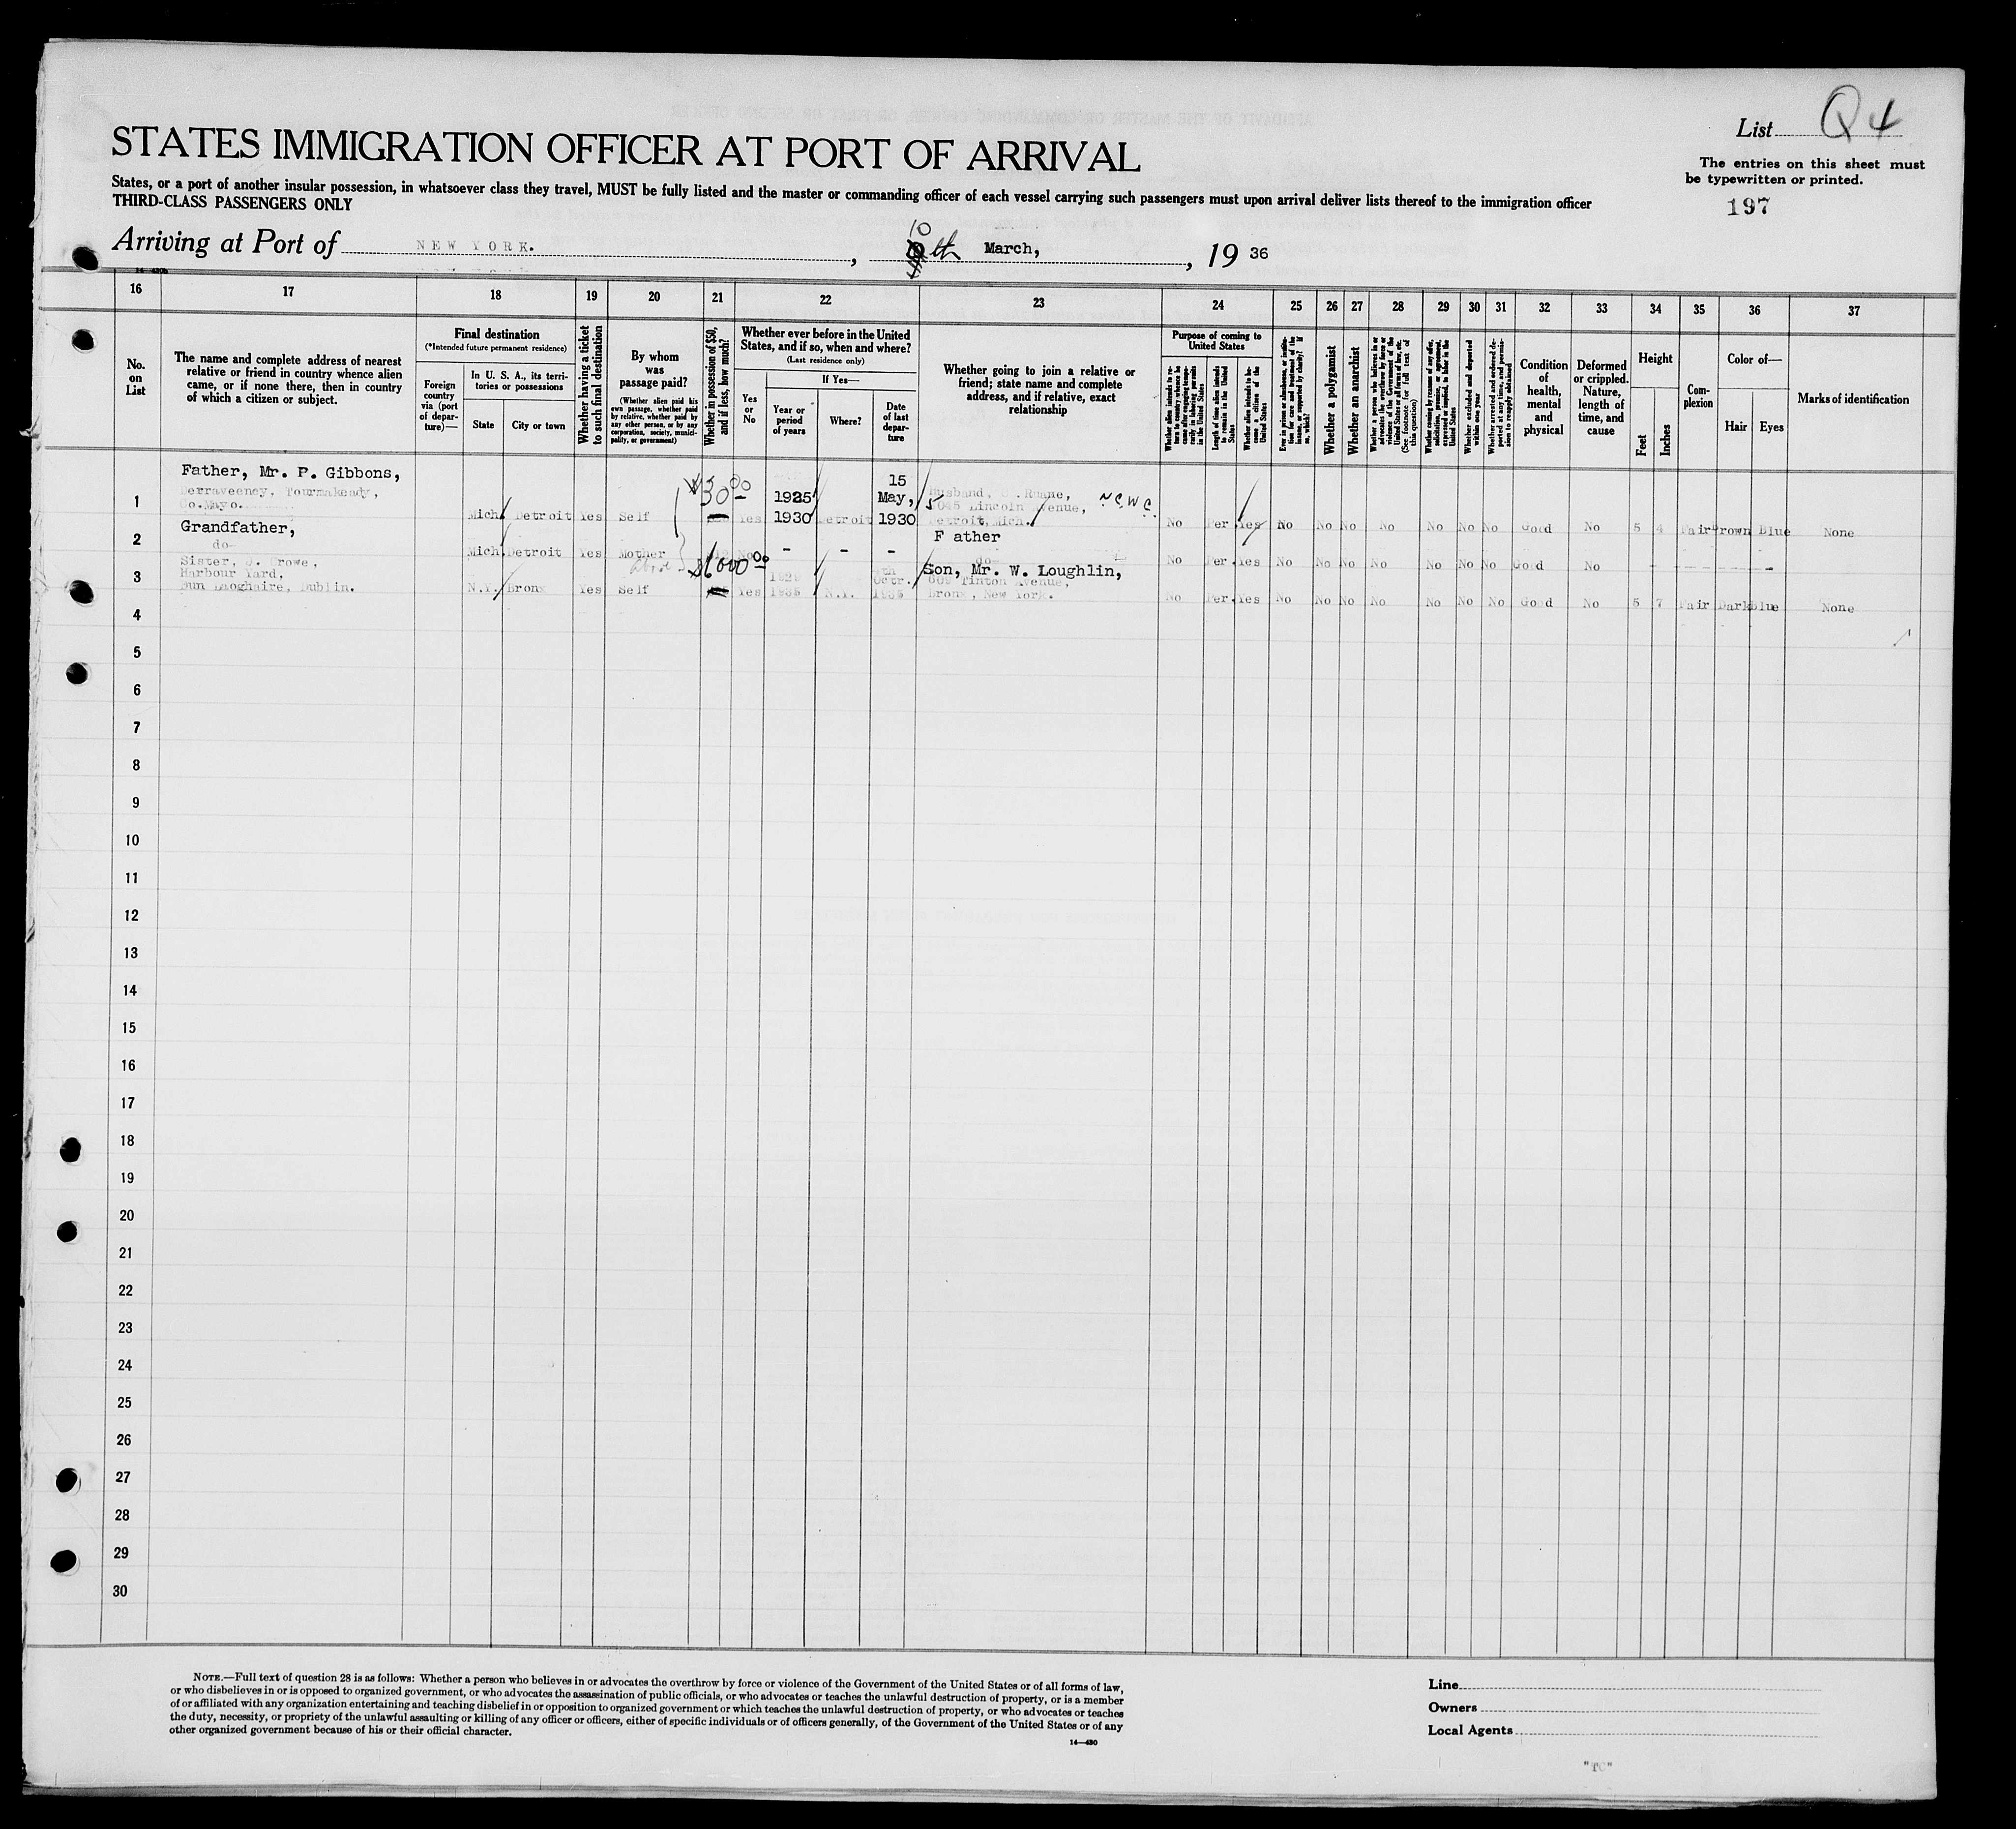 List Q4
STATES IMMIGRATION OFFICER AT PORT OF ARRIVAL
The entries on this sheet must
be typewritten or printed.
States, or a port of another insular possession, in whatsoever class they travel, MUST be fully listed and the master or commanding officer of each vessel carrying such passengers must upon arrival deliver lists thereof to the immigration officer
THIRD-CLASS PASSENGERS ONLY
197
Arriving at Port of NEW YORK. , 10 th March, , 19 36
16 17 18 19 20 21 22 23 24 25 26 27 28 29 30 31 32 33 34 35 36 37
No.
on
List
The name and complete address of nearest
relative or friend in country whence alien
came, or if none there, then in country
of which a citizen or subject.
Final destination
(*Intended future permanent residence)
Foreign
country
via (port
of depar-
ture)—
In U. S. A., its terri-
tories or possessions
State
City or town
Whether having a ticket
to such final destination
By whom
was
passage paid?
(Whether alien paid his
own passage, whether paid
by relative, whether paid by
any other person, or by any
corporation, society, munici-
pality, or government)
Whether in possession of $50,
and if less, how much?
Whether ever before in the United
States, and if so, when and where?
(Last residence only)
Yes
or
No
If Yes—
Year or
period
of years
Where?
Date
of last
depar-
ture
Whether going to join a relative or
friend; state name and complete
address, and if relative, exact
relationship
Purpose of coming to
United States
Length of time alien intends
to remain in the United
States
Whether alien intends to be-
come a citizen of the
United States
Whether a polygamist
Whether an anarchist
Whether excluded and deported
within one year
Condition
of
health,
mental
and
physical
Deformed
or crippled.
Nature,
length of
time, and
cause
Height
Feet
Inches
Com-
plexion
Color of—
Hair
Eyes
Marks of identification
Father, Mr. P. Gibbons,
Derraveeney, Tourmakeady,
Co.Mayo.
1 Mich. Detroit Yes Self $30.00 Yes 1925 1930 Detroit 15 May, 1930
Husband, Ruane,
Lincoln Avenue,
Detroit, Mich.
No Per. Yes No No No No No No No Good No 5 4 Fair Brown Blue None
Grandfather,
do-
2 Mich. Detroit Yes Mother No - - -
F ather
do-
No Per. Yes No No No No No No No Good No - - - - -
Sister, Crowe,
Harbour Yard,
Dun Laoghaire, Dublin.
3 N.Y. Bronx Yes Self $1000.00 Yes 1935 N.Y. Octr. 1935
Son, Mr. W. Loughlin,
609 Tinton Avenue,
Bronx, New York.
No Per. Yes No No No No No No No Good No 5 7 Fair Dark Blue None
4
5
6
7
8
9
10
11
12
13
14
15
16
17
18
19
20
21
22
23
24
25
26
27
28
29
30
NOTE.—Full text of question 28 is as follows: Whether a person who believes in or advocates the overthrow by force or violence of the Government of the United States or of all forms of law,
or who disbelieves in or is opposed to organized government, or who advocates the assassination of public officials, or who advocates or teaches the unlawful destruction of property, or is a member
of or affiliated with any organization entertaining and teaching disbelief in or opposition to organized government or which teaches the unlawful destruction of property, or who advocates or teaches
the duty, necessity, or propriety of the unlawful assaulting or killing of any officer or officers, either of specific individuals or of officers generally, of the Government of the United States or of any
other organized government because of his or their official character.
14—430
Line
Owners
Local Agents
"TC"